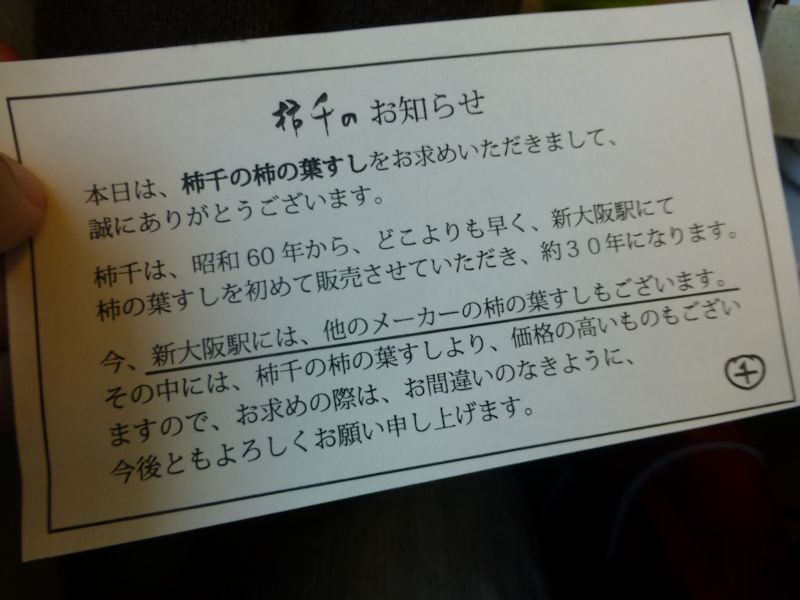 柿千の お知らせ
本日は、柿千の柿の葉すしをお求めいただきまして、
誠にありがとうございます。
柿千は、昭和60年から、どこよりも早く、新大阪駅にて
柿の葉すしを初めて販売させていただき、約30年になります。
今、新大阪駅には、他のメーカーの柿の葉すしもございます。
その中には、柿千の柿の葉すしより、価格の高いものもござい
ますので、お求めの際は、お間違いのなきように、
今後ともよろしくお願い申し上げます。
千